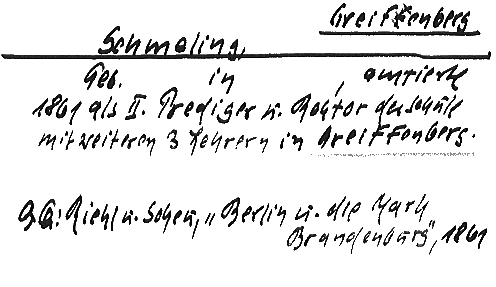 Greiffenberg
Schmeling,
Geb. in , amtierte
1861 als II. Prediger u. Rektor der Schule
mit weiteren 3 Lehrern in Greiffenberg.
QQ: Riehl u. Scheu, „Berlin u. die Mark
Brandenburg", 1861